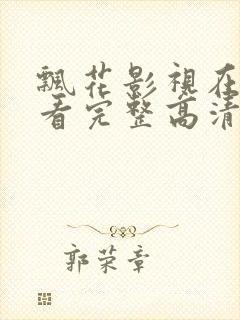 飄花影視在
看完整高清
郭荣章